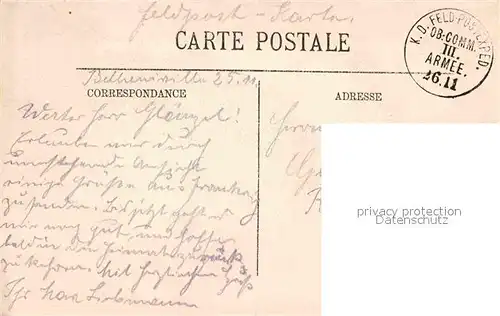 Feldpost-Karte.
CARTE POSTALE
K. D. FELD-POSTEXPED.
OB-COMM.
III.
ARMEE.
26.11
Betheniville 25.11.
CORRESPONDANCE
ADRESSE
Werter Herr
Erlaube mir durch
umstehende Ansicht
einige Grüße aus
zu senden. Bis jetzt geht es
mir noch gut und hoffe
bald in die Heimat zurück
zukehren. Mit herzlichem Gruß
Ihr
Herrn
privacy protection
Datenschutz